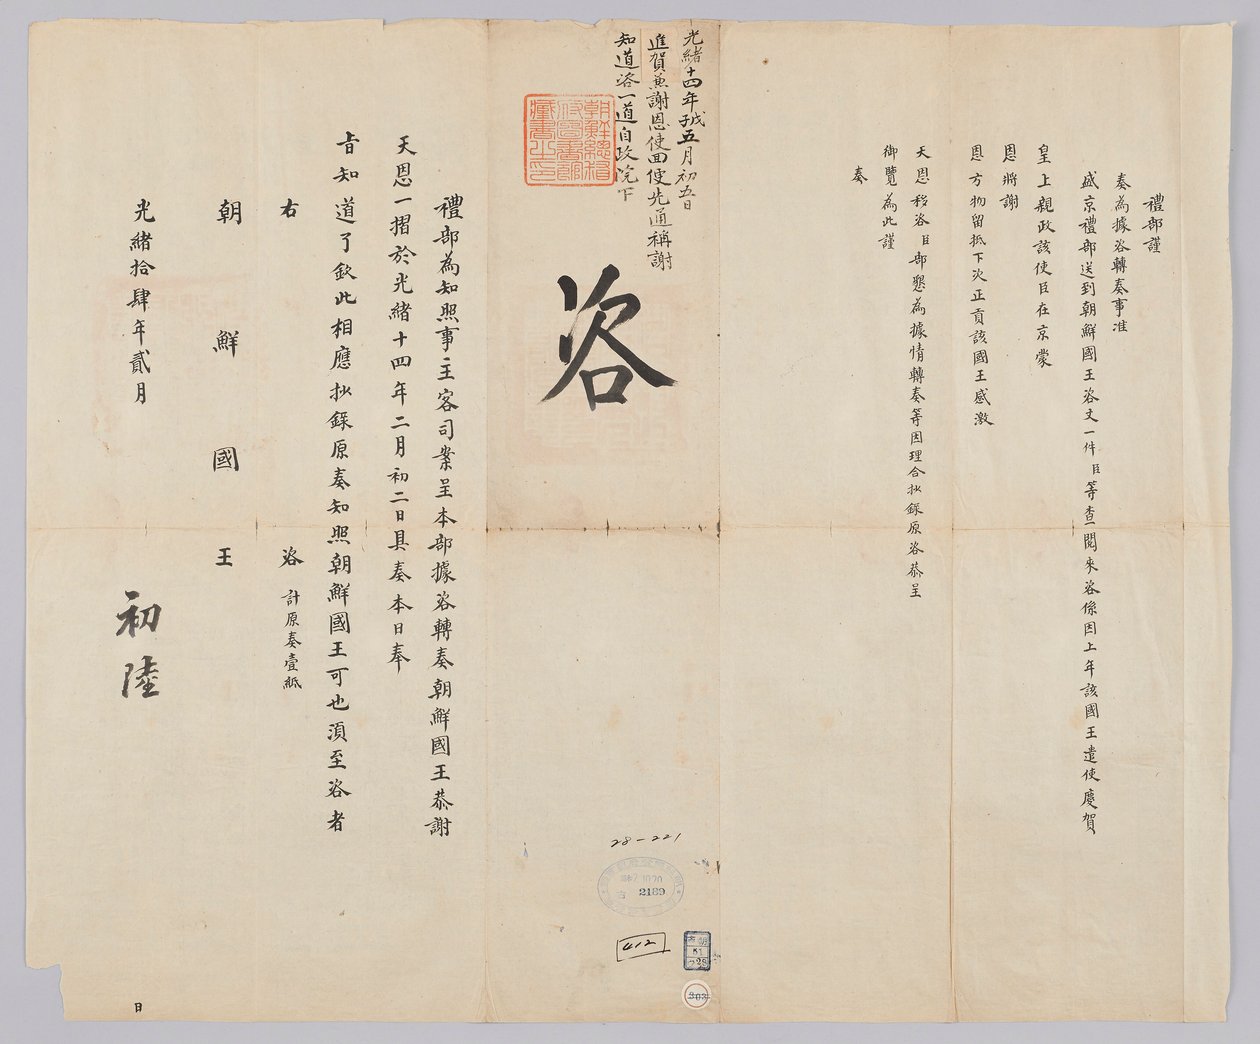 禮部謹
奏為據咨轉奏事准
盛京禮部送到朝鮮國王咨文一件臣等查閱來咨係因上年該國王遣使慶賀
皇上親政該使臣在京蒙
恩將謝
恩方物留抵下次正貢該國王感激
天恩移咨臣部懇為據情轉奏等因理合抄錄原咨恭呈
御覽為此謹
奏
光緒十四年戊子五月初五日
進賀兼謝恩使回便先通稱謝
知道咨一道自政院下
朝鮮總督府圖書館藏書之印
咨
28-221
10.20
古 2189
412
303
禮部為知照事主客司案呈本部據咨轉奏朝鮮國王恭謝
天恩一摺於光緒十四年二月初二日具奏本日奉
旨知道了欽此相應抄錄原奏知照朝鮮國王可也須至咨者
右 咨 計原奏壹紙
朝鮮國王
光緒拾肆年貳月 初陸 日